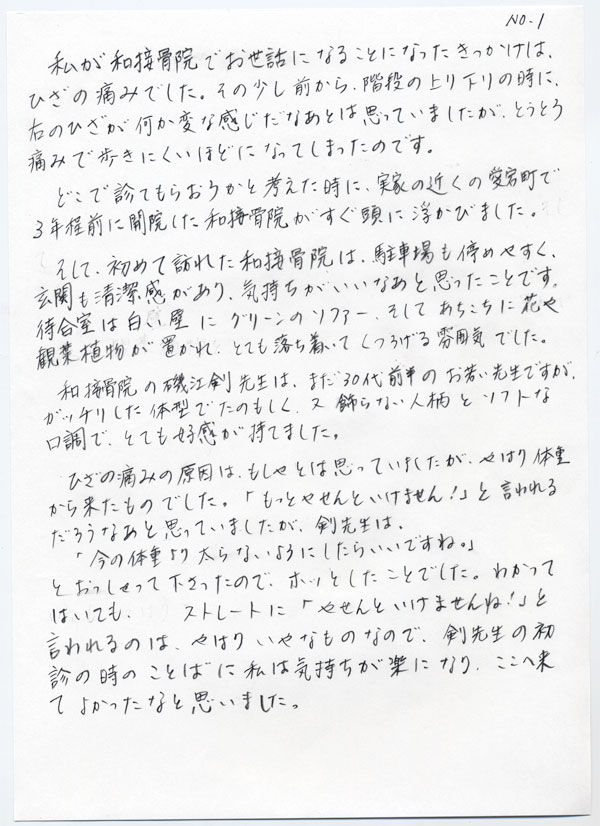 NO-1
私が和接骨院でお世話になることになったきっかけは、
ひざの痛みでした。その少し前から、階段の上り下りの時に、
右のひざが何か変な感じだなあとは思っていましたが、とうとう
痛みで歩きにくいほどになってしまったのです。
どこで診てもらおうかと考えた時に、実家の近くの愛宕町で
3年程前に開院した和接骨院がすぐ頭に浮かびました。
そして、初めて訪れた和接骨院は、駐車場も停めやすく、
玄関も清潔感があり、気持ちがいいなあと思ったことです。
待合室は白い壁にグリーンのソファー、そしてあちこちに花や
観葉植物が置かれ、とても落ち着いてくつろげる雰囲気でした。
和接骨院の磯江剣先生は、まだ30代前半のお若い先生ですが、
ガッチリした体型でたのもしく、又飾らない人柄とソフトな
口調で、とても好感が持てました。
ひざの痛みの原因は、もしやとは思っていましたが、やはり体重
から来たものでした。「もっとやせんといけません!」と言われる
だろうなあと思っていましたが、剣先生は、
「今の体重より太らないようにしたらいいですね。」
とおっしゃって下さったので、ホッとしたことでした。わかって
はいても、 ストレートに「やせんといけませんね!」と
言われるのは、やはりいやなものなので、剣先生の初
診の時のことばに私は気持ちが楽になり、ここへ来
てよかったなと思いました。